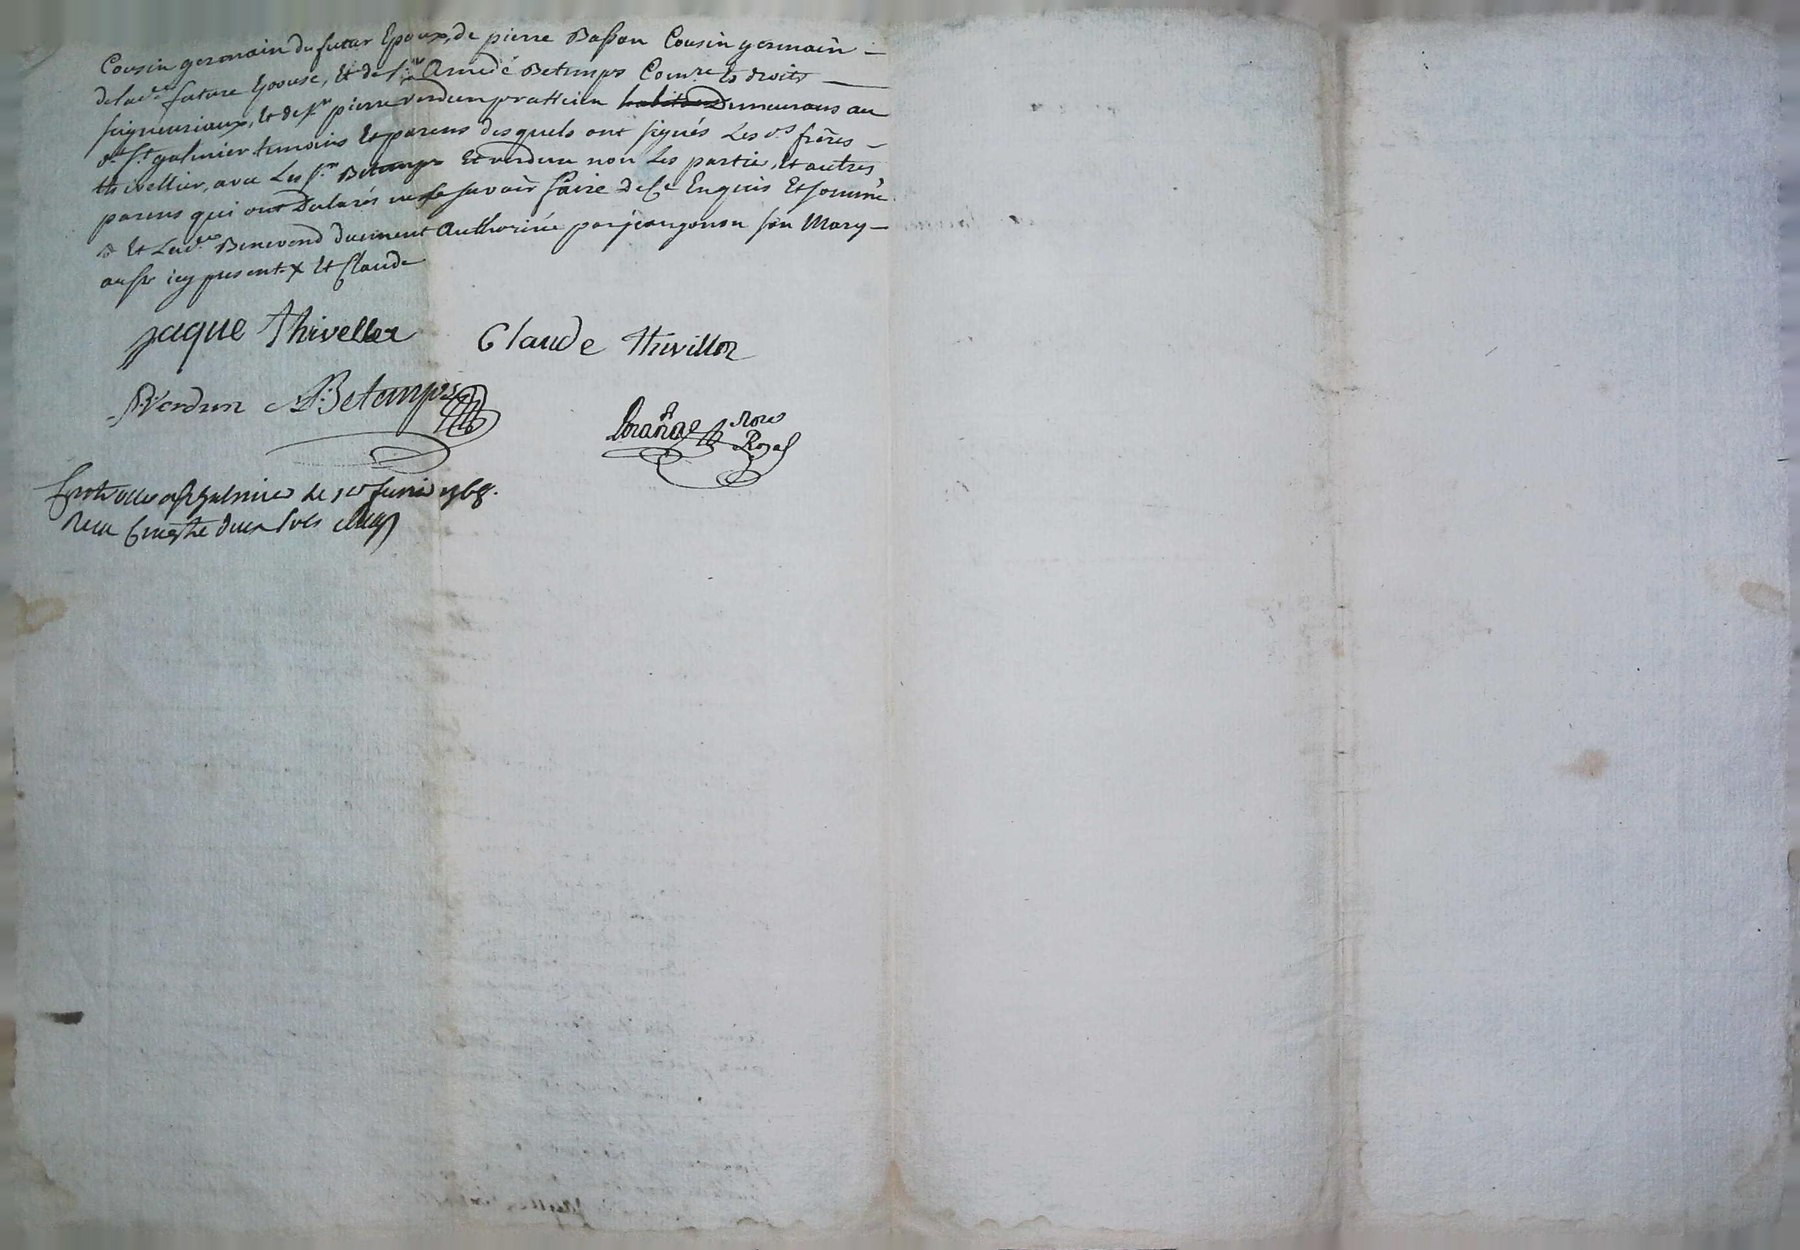 Cousin germain du futur Epoux, de pierre Basson Cousin germain
de lad.e future Epouse, Et de S.r Amedé Betemps Com.re Es droits
seigneuriaux, Et de S.r pierre verdun pratticien Demeurans au
d. St. galmier temoins Et parens desquels ont signés Les d.s frères
thivellier, avec Les S.rs Betemps Et verdun non Les partie, Et autres
parens qui ont Declarés ne savoir faire de Ce Enquis Et sommé
Et Lad.e Benevend duement Authorisée par jean gonon son Mary
aussi icy present x Et Claude
jaque thivellier
Claude thivillier
P. Verdun
A. Betemps
No.re Royal
Controllé a St galmier Le 1768.
Recu deux sols